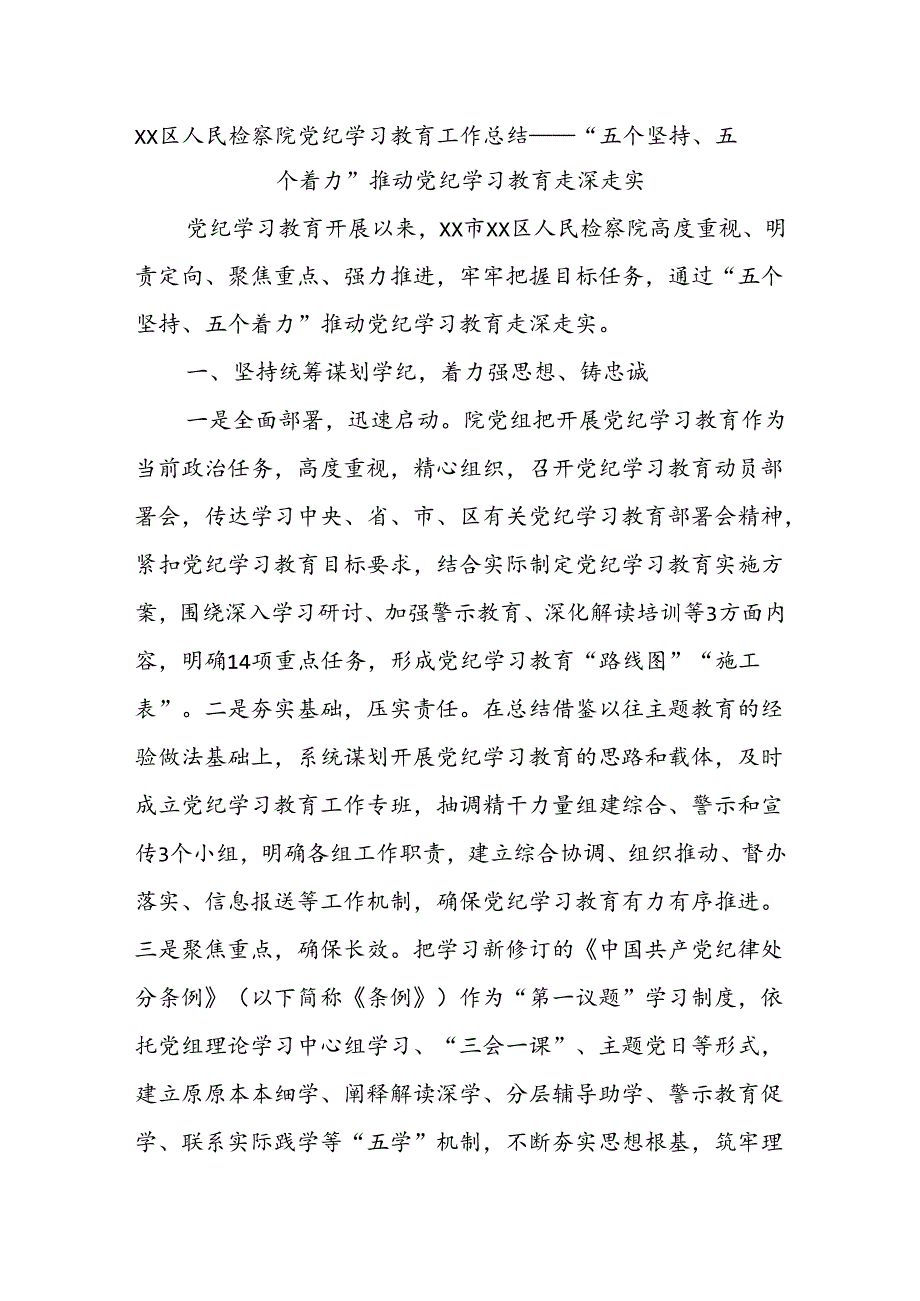 XX区人民检察院党纪学习教育工作总结——“五个坚持、五
个着力”推动党纪学习教育走深走实
党纪学习教育开展以来，XX市XX区人民检察院高度重视、明
责定向、聚焦重点、强力推进，牢牢把握目标任务，通过“五个
坚持、五个着力”推动党纪学习教育走深走实。
一、坚持统筹谋划学纪，着力强思想、铸忠诚
一是全面部署，迅速启动。院党组把开展党纪学习教育作为
当前政治任务，高度重视，精心组织，召开党纪学习教育动员部
署会，传达学习中央、省、市、区有关党纪学习教育部署会精神，
紧扣党纪学习教育目标要求，结合实际制定党纪学习教育实施方
案，围绕深入学习研讨、加强警示教育、深化解读培训等3方面内
容，明确14项重点任务，形成党纪学习教育“路线图”“施工
表”。二是夯实基础，压实责任。在总结借鉴以往主题教育的经
验做法基础上，系统谋划开展党纪学习教育的思路和载体，及时
成立党纪学习教育工作专班，抽调精干力量组建综合、警示和宣
传3个小组，明确各组工作职责，建立综合协调、组织推动、督办
落实、信息报送等工作机制，确保党纪学习教育有力有序推进。
三是聚焦重点，确保长效。把学习新修订的《中国共产党纪律处
分条例》（以下简称《条例》）作为“第一议题”学习制度，依
托党组理论学习中心组学习、“三会一课”、主题党日等形式，
建立原原本本细学、阐释解读深学、分层辅导助学、警示教育促
学、联系实际践学等“五学”机制，不断夯实思想根基，筑牢理